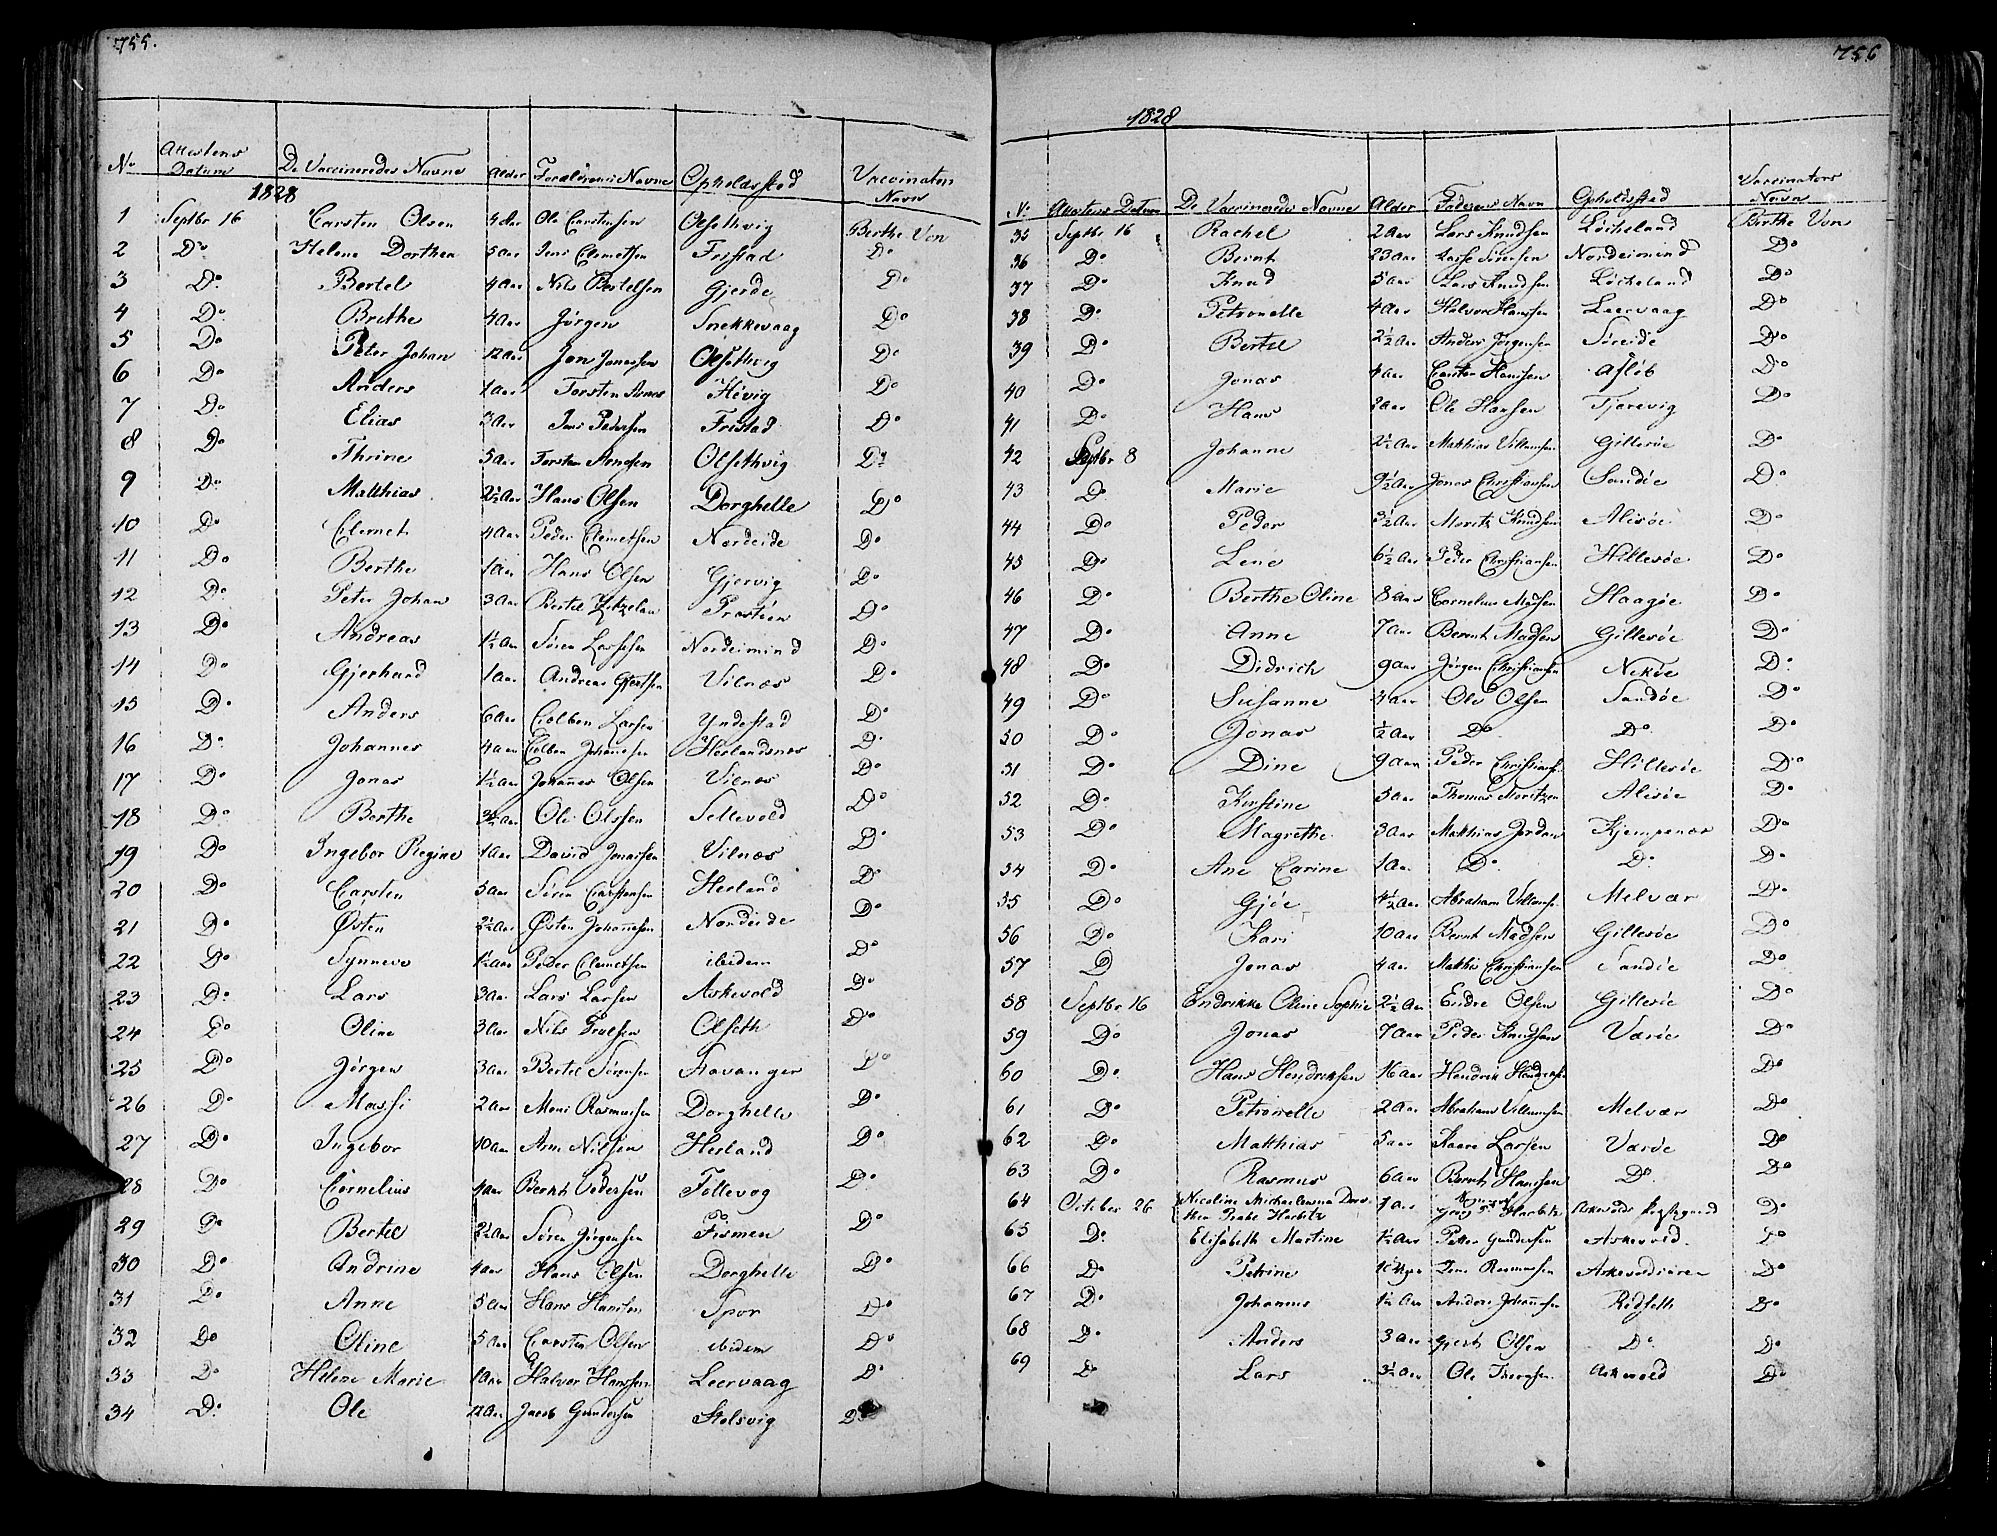 755.
No Attestens Datum De Vaccineredes Navne Alder Forældrenes Navne Opholdssted Vaccinatens Navn
1828
1 Septbr 16 Carsten Olsen 4 Aar Ole Carstensen Olsethvig Berthe Von
2 Do Helene Dorthea 5 Aar Jens Clemetsen Fristad Do
3 Do Bertel 4 Aar Nils Bertelsen Gjerde Do
4 Do Brithe 4 Aar Jørgen Snekkevaag Do
5 Do Peter Johan 12 Aar Jon Jonassen Olsethvig Do
6 Do Anders 1 Aar Torsten Hövig Do
7 Do Elias 3 Aar Jens Pedersen Fristad Do
8 Do Thrine 5 Aar Torsten Olsethvig Do
9 Do Matthias 2½ Aar Hans Olsen Dorghelle Do
10 Do Clemet 4 Aar Peder Clemetsen Nordeide Do
11 Do Berthe 1 Aar Hans Olsen Gjervig Do
12 Do Peter Johan 3 Aar Bertel Do
13 Do Andreas 1½ Aar Sören Larsen Nordeimind Do
14 Do Gjerhard 1 Aar Andreas Gjertsen Vilnæs Do
15 Do Anders 6 Aar Colben Larsen Yndestad Do
16 Do Johannes 4 Aar Colben Johansen Herlandsnes Do
17 Do Jonas 1½ Aar Johannes Olsen Vilnæs Do
18 Do Berthe 3½ Aar Ole Olsen Sellevold Do
19 Do Ingebor Regine 1 Aar David Jonassen Vilnæs Do
20 Do Carsten 5 Aar Sören Carstensen Herland Do
21 Do Østen 2½ Aar Østen Johannesen Nordeide Do
22 Do Synneve 1½ Aar Peder Clemetsen ibidem Do
23 Do Lars 3 Aar Lars Larsen Askevold Do
24 Do Oline 3 Aar Nils Olseth Do
25 Do Jørgen 3 Aar Bertel Sørensen Stavanger Do
26 Do Massi 2 Aar Moni Rasmusen Dorghelle Do
27 Do Ingebor 10 Aar Arne Nilsen Herland Do
28 Do Cornelius 4 Aar Bernt Pedersen Follevog Do
29 Do Bertel 2½ Aar Sören Jørgensen Do
30 Do Andrine 4 Aar Hans Olsen Dorghelle Do
31 Do Anne 5 Aar Hans Hansen Spor Do
32 Do Oline 5 Aar Carsten Olsen ibidem Do
33 Do Helene Marie 1 Aar Halvor Hanssen Leervaag Do
34 Do Ole 12 Aar Jacob Gundersen Stolsvig Do
756
1828
No Attestens Datum De Vaccineredes Navne Alder Faderens Navn Opholdssted Vaccinators Navn
35 Septbr 16 Rachel 2 Aar Lars Knudsen Løcheland Berthe Von
36 Do Bernt 23 Aar Lasse Sörensen Nordeimind Do
37 Do Knud 5 Aar Lars Knudsen Løcheland Do
38 Do Petronelle 4 Aar Halvor Hanssen Leervaag Do
39 Do Bertel 2½ Aar Anders Jørgensen Söreide Do
40 Do Jonas 4 Aar Carsten Hansen Afløb Do
41 Do Hans 2 Aar Ole Hansen Tjorevig Do
42 Septbr 8 Johanne 2½ Aar Matthias Villumsen Gillesöe Do
43 Do Marie 9½ Aar Jonas Christiansen Sandöe Do
44 Do Peder 3½ Aar Moritz Knudsen Alisöe Do
45 Do Lene 6½ Aar Peder Christiansen Hillesöe Do
46 Do Berthe Oline 8 Aar Cornelius Madsen Haagöe Do
47 Do Anne 7 Aar Bernt Madsen Gillesöe Do
48 Do Didrich 9 Aar Jörgen Christiansen Nekøe Do
49 Do Susanne 4 Aar Ole Olsen Sandöe Do
50 Do Jonas ½ Aar Do Do Do
51 Do Dine 9 Aar Peder Christians. Hillesöe Do
52 Do Kirstine 5 Aar Thomas Moritzen Alisöe Do
53 Do Magrethe 3 Aar Matthias Jordan Kjempenes Do
54 Do Ane Carine 1 Aar Do Do Do
55 Do Gjöe 4½ Aar Abraham Villums. Melvær Do
56 Do Kari 10 Aar Bernt Madsen Gillesöe Do
57 D Jonas 4 Aar Mathis Christiansen Sandöe Do
58 Septbr 16 Endrikke Oline Sophie 2½ Aar Endre Olsen Gillesöe Do
59 Do Jonas 7 Aar Peder Knudsen Væröe Do
60 Do Hans Hendriksen 16 Aar Hendrik Hendriksen Do
61 Do Petronelle 2 Aar Abrahams Villumsen Melvær Do
62 Do Matthias 5 Aar Kaare Larsen Væröe Do
63 Do Rasmus 6 Aar Bernt Hanssen Do Do
64 October 26 Nicoline Michaelewna Doro-
thea Harbitz 1 Aar Harbitz Askevolds Præstegaard Do
65 Do Elisabeth Martine 1½ Aar Petter Gundersen Askevold. Do
66 Do Petrine Jens Rasmussen Askevoldsören Do
67 Do Johannes 1½ Aar Anders Johannesen Redseth Do
68 Do Anders 3 Aar Gjert Olsen Do Do
69 D Lars 3½ Aar Ole Askevold Do